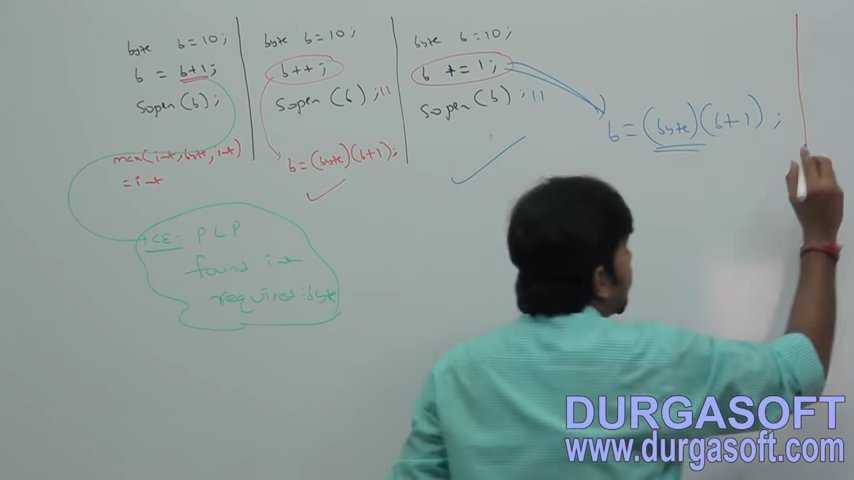 byte b=10;
b = b+1;
Sopln(b);
max(int, byte, int)
=int
CE: PLP
found: int
required: byte
byte b=10;
b++;
Sopln(b); 11
b=(byte)(b+1);
byte b=10;
b += 1;
Sopln(b); 11
b=(byte)(b+1);
DURGASOFT
www.durgasoft.com